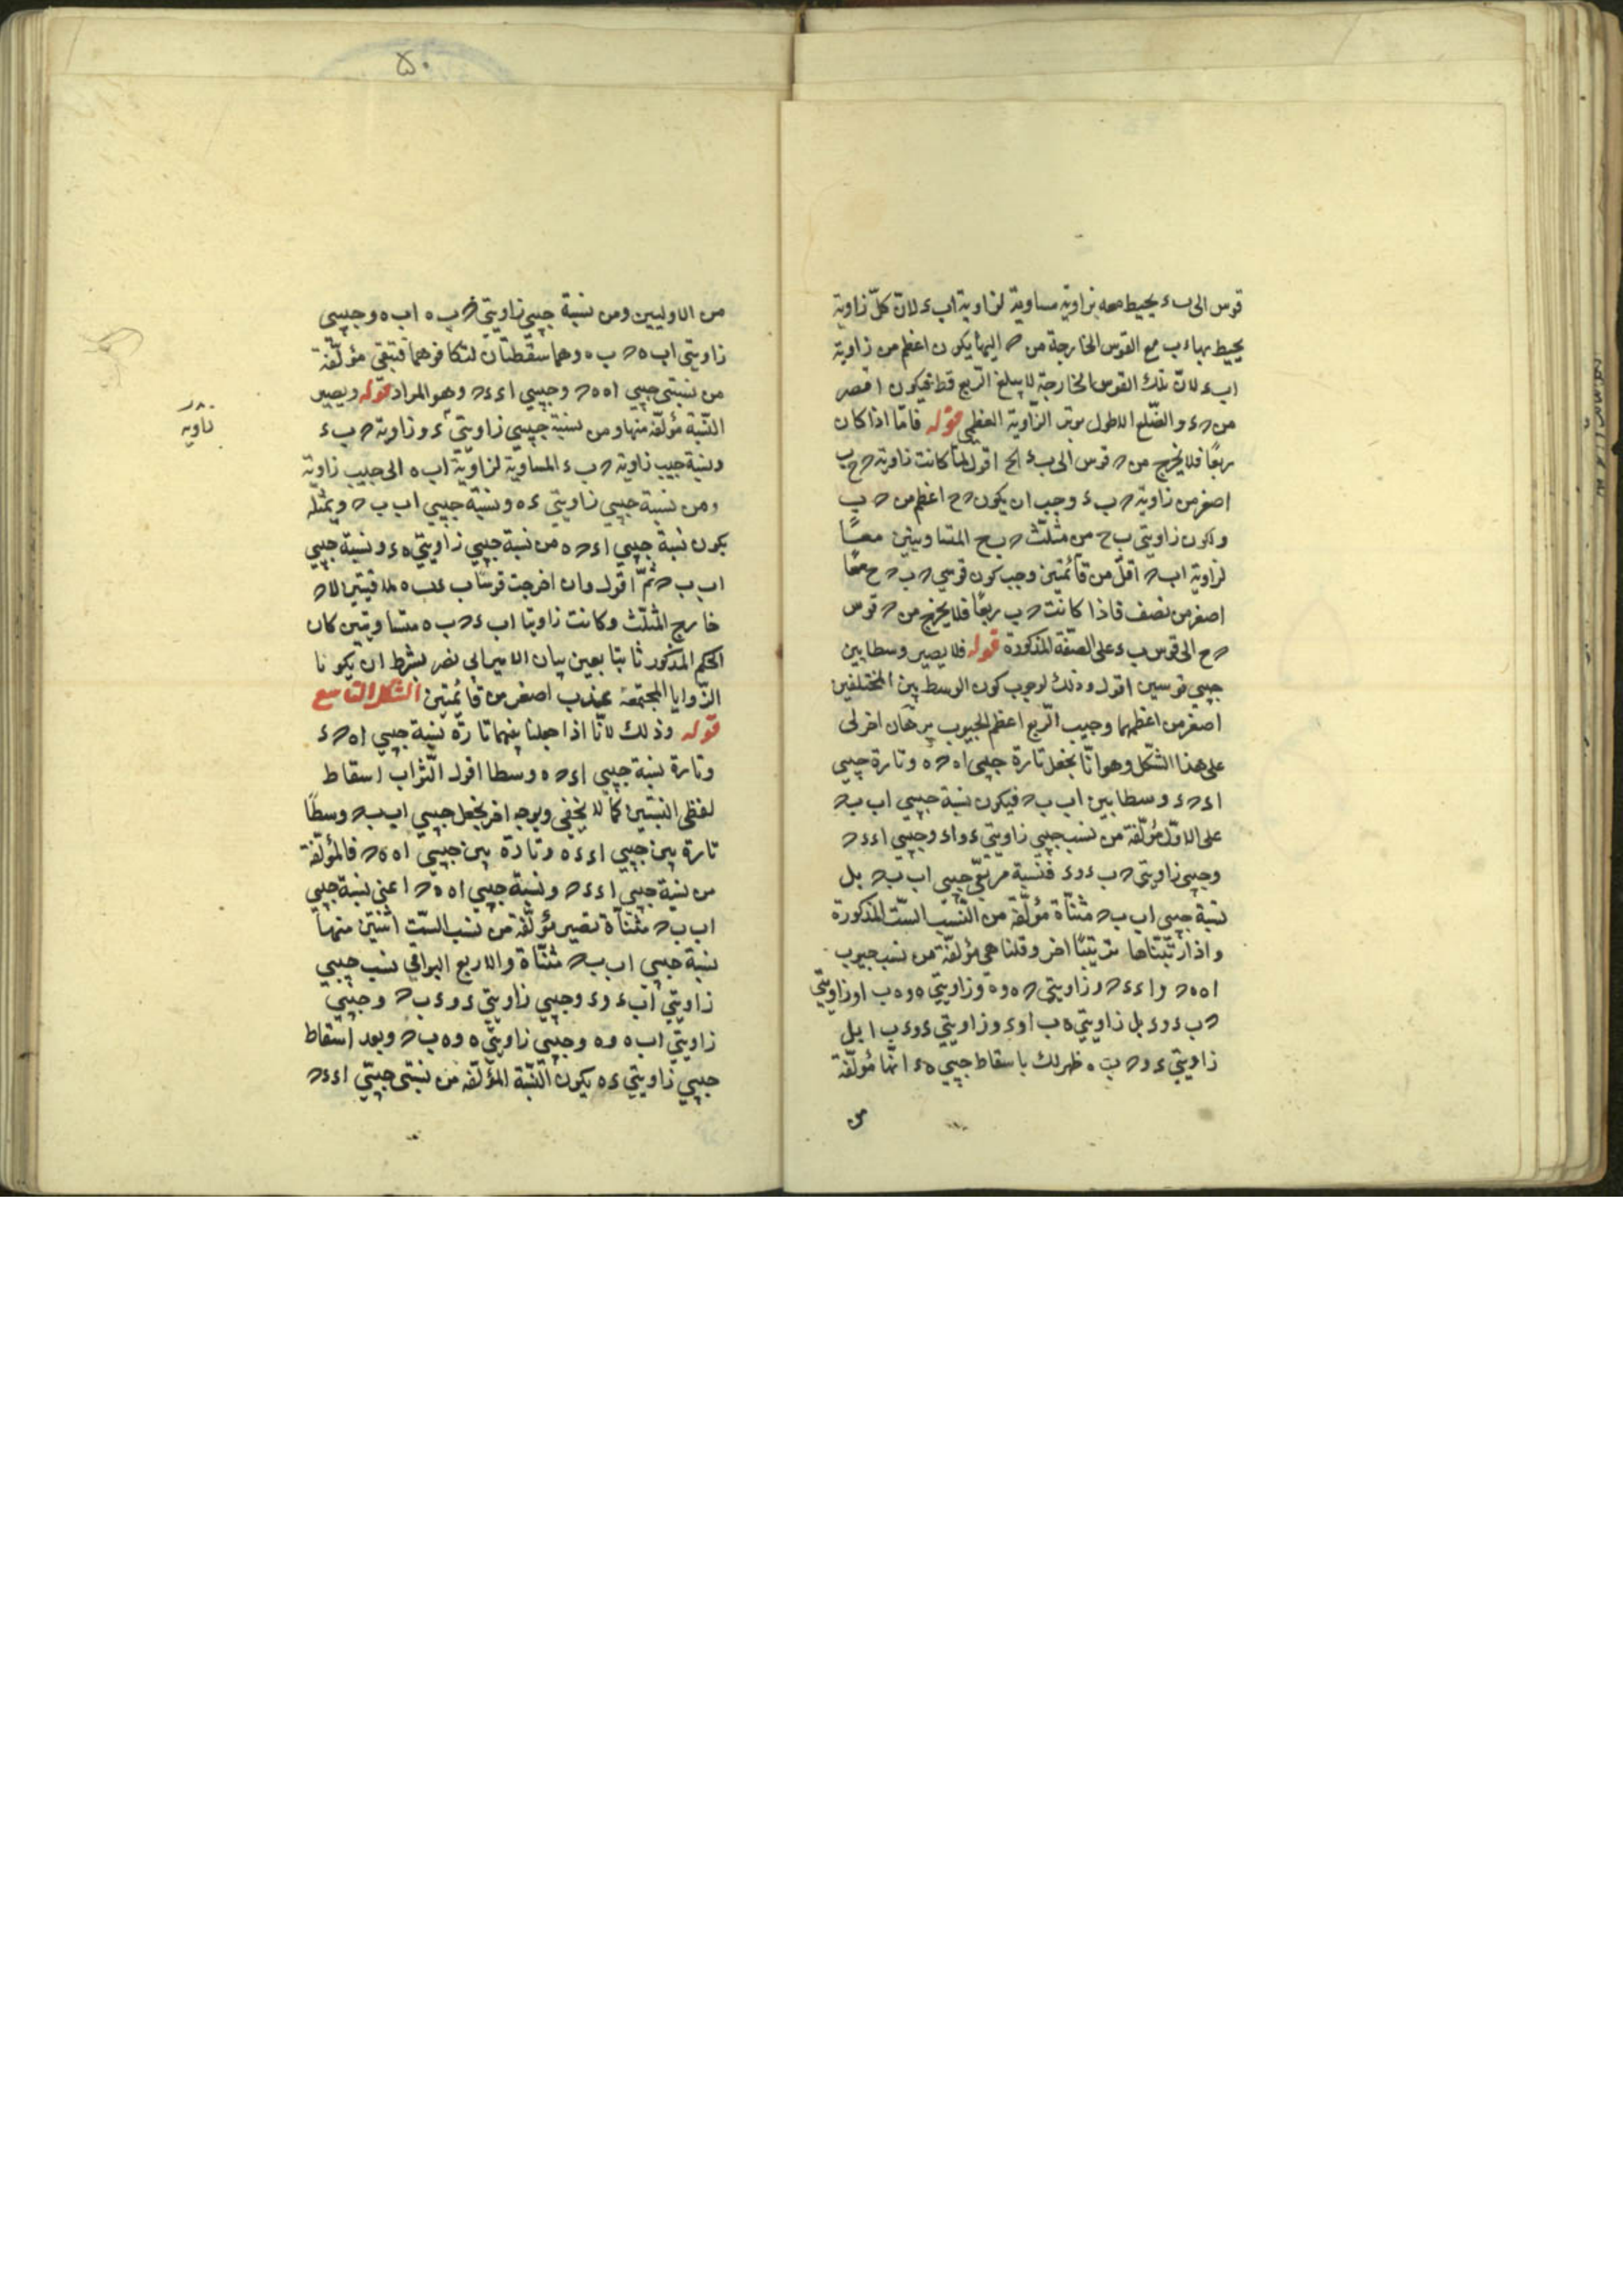 قوس الى ب ء يحيط معه بزاوية مساوية لزاوية ا ب ء لان كلّ زاوية
يحيط بها ء ب مع القوس الخارجة من ح اليها يكون اعظم من زاوية
ا ب ء لان تلك القوس الخارجة لا يبلغ الربع قط فيكون اقصر
من ح ء والضّلع الاطول يوتر الزّاوية العظمى قوله فامّا اذا كان
ربعًا فلا يخرج من ح قوس الى ب ء الخ اقول لمّا كانت زاوية ح ح ب
اصغر من زاوية ح ب ء وجب ان يكون ح ح اعظم من ح ب
ولكون زاويتي ب ح من مثلّث ح ب ح المتساويتين معًا
لزاوية ا ب ح اقلّ من قائمتين وجب كون قوسي ح ب ح ح معًا
اصغر من نصف فاذا كانت ح ب ربعًا فلا يخرج من ح قوس
ح ح الى قوس ب ء على الصّفة المذكورة قوله فلا يصير وسطا بين
جيبي قوسين اقول وذلك لوجوب كون الوسط بين المختلفين
اصغر من اعظمهما وجيب الرّبع اعظم الجيوب برهان اخر لى
على هذا الشّكل وهو انّا نجعل تارة جيبى ا ه ح ه وتارة جيبي
ا ء ح ء وسطا بين ا ب ب ح فيكون نسبة جيبي ا ب ب ح
على الاوّل مؤلّفة من نسب جيبي زاويتي ء و ا ء وجيبي ا ء ء ح
وجيبى زاويتي ح ب ء و ء فنسبة مربّعي جيبي ا ب ب ح بل
نسبة جيبى ا ب ب ح مثنّاة مؤلّفة من النّسب الستّ المذكورة
واذا رتّبناها ترتيبًا اخر وقلنا هى مؤلّفة من نسب جيوب
ا ه ه ح و ا ء ء ح وزاويتي ح ه و ة وزاويتي ه و ه ب ا وزاويتي
ح ب ء و ء بل زاويتي ه ب ا و ء وزاويتي ء و ء ب ا بل
زاويتي ء و ح ب ه ظهر لك باسقاط جيبي ه ء انّها مؤلّفة
من
۵۰
من الاوليين ومن نسبة جيبي زاويتي ح ب ه ا ب ه وجيبي
زاويتي ا ب ه ح ب ه وهما سقطتان لتكافوهما فتبقى مؤلّفة
من نسبتي جيبي ا ه ه ح وجيبي ا ء ء ح وهو المراد قوله ويصير
النّسبة مؤلّفة منها ومن نسبة جيبي زاويتي ء وزاوية ح ب ء
ونسبة جيب زاوية ح ب ء المساوية لزاوية ا ب ه الى جيب زاوية
ومن نسبة جيبي زاويتي ء ه ونسبة جيبي ا ب ب ح وبمثله
يكون نسبة جيبي ا ء ح ه من نسبة جيبي زاويتي ه ء ونسبة جيبي
ا ب ب ح ثمّ اقول وان اخرجت قوسا ب ء ب ه ملاقيتين لا ح
خارج المثلّث وكانت زاويتا ا ب ء ح ب ه متساويتين كان
الحكم المذكور ثابتا بعين بيان الامير ابي نصر بشرط ان يكونا
الزّوايا المجتمعة عند ب اصغر من قائمتين الشّكل التّاسع
قوله وذلك لانّا اذا جعلنا بينهما تارة نسبة جيبي ا ه ح ء
وتارة نسبة جيبي ا ء ح ه وسطا اقول الصّواب اسقاط
لفظى النسبتين كما لا يخفى وبوجه اخر نجعل جيبي ا ب ب ح وسطًا
تارة بين جيبي ا ء ء ه وتارة بين جيبي ا ه ه ح فالمؤلّفة
من نسبة جيبي ا ء ء ح ونسبة جيبي ا ه ه ح اعنى نسبة جيبي
ا ب ب ح مثنّاة تصير مؤلّفة من نسب الستّ اثنتين منها
نسبة جيبي ا ب ب ح مثنّاة والاربع البواقي نسب جيبي
زاويتي ا ب ء و ء وجيبي زاويتي ء و ء ب ح وجيبي
زاويتي ا ب ه و ه وجيبي زاويتي ه و ه ب ح وبعد اسقاط
جيبي زاويتي ء ه يكون النّسبة المؤلّفة من نسبتي جيبي ا ء ء ح
زاوية